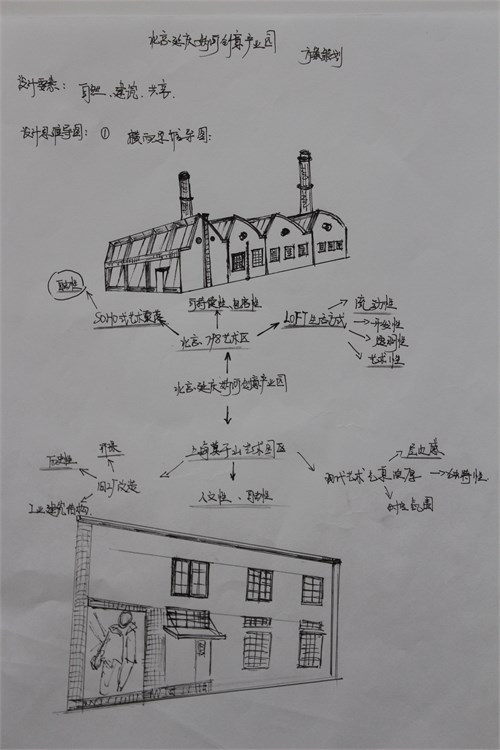 北京·延庆 创意产业园 方案策划
设计要素：自然、建筑、共享.
设计思维导图：① 横向思维导图：
自由性
可持续性、包容性
SOHO式艺术聚落
LOFT生活方式
流动性
开放性
透明性
艺术性
北京·798艺术区
北京·延庆 创意产业园
上海莫干山艺术园区
开敞
历史性
旧厂改造
工业建筑结构
人文性、自由性
现代艺术 浓厚
创作氛围